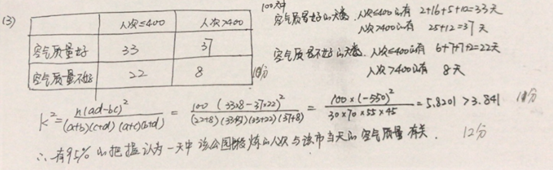 (3)
人次≤400 人次>400
空气质量好 33 37
空气质量不好 22 8
10分
100天中
空气质量好的天数,人次≤400的有 2+16+5+10=33天
人次>400的有 25+12=37天
空气质量不好的天数,人次≤400的有 6+7+7+2=22天
人次>400的有 8天
K²=n(ad-bc)²/(a+b)(c+d)(a+c)(b+d) = 100(33×8-37×22)²/(22+8)(33+37)(33+22)(37+8) = 100×(-550)²/30×70×55×45 = 5.8201>3.841 11分
∴有95%的把握认为一天中该公园锻炼的人次与该市当天的空气质量有关. 12分